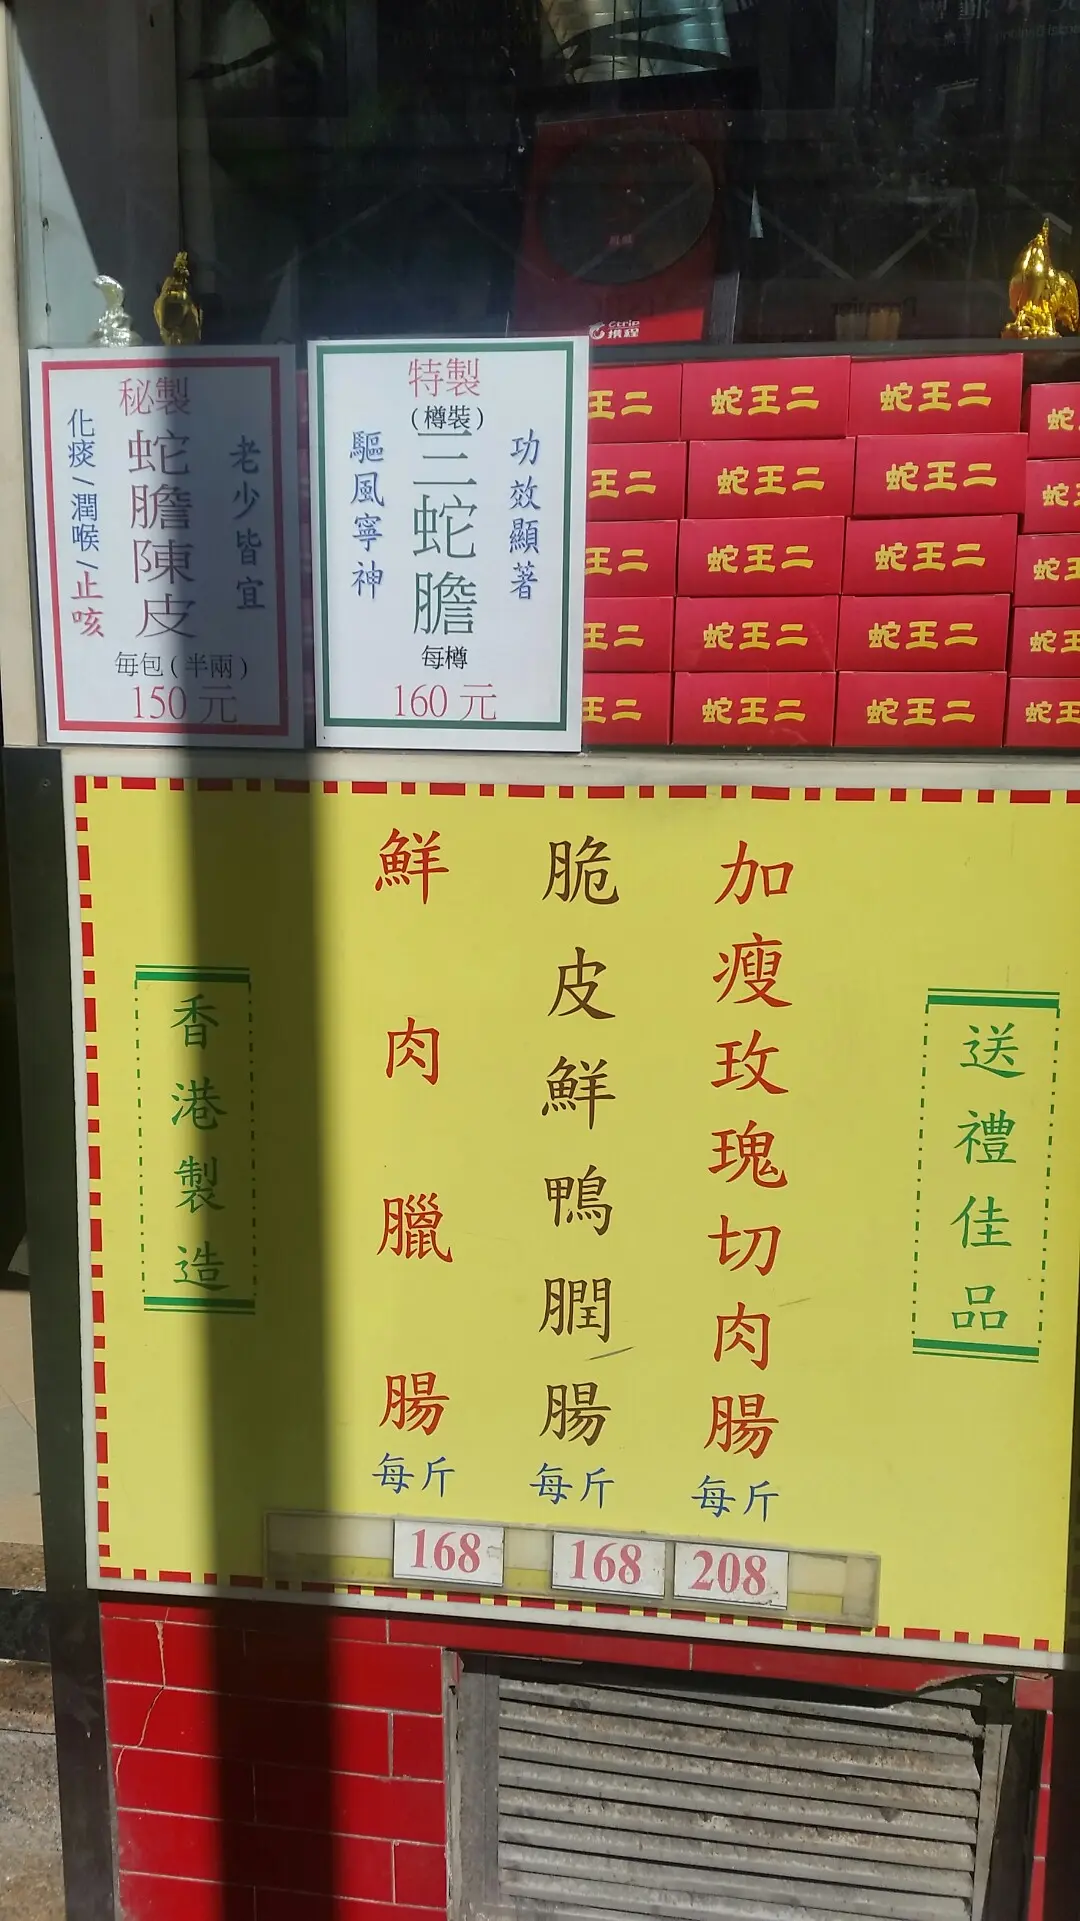 Ctrip
携程
秘製
蛇膽陳皮
老少皆宜
化痰/潤喉/止咳
每包(半兩)
150元
特製
(樽裝)
三蛇膽
功效顯著
驅風寧神
每樽
160元
王二
蛇王二
蛇王二
蛇
王二
蛇王二
蛇王二
蛇王
王二
蛇王二
蛇王二
蛇王
王二
蛇王二
蛇王二
蛇王
王二
蛇王二
蛇王二
蛇王
送禮佳品
加瘦玫瑰切肉腸
每斤
208
脆皮鮮鴨膶腸
每斤
168
鮮肉臘腸
每斤
168
香港製造